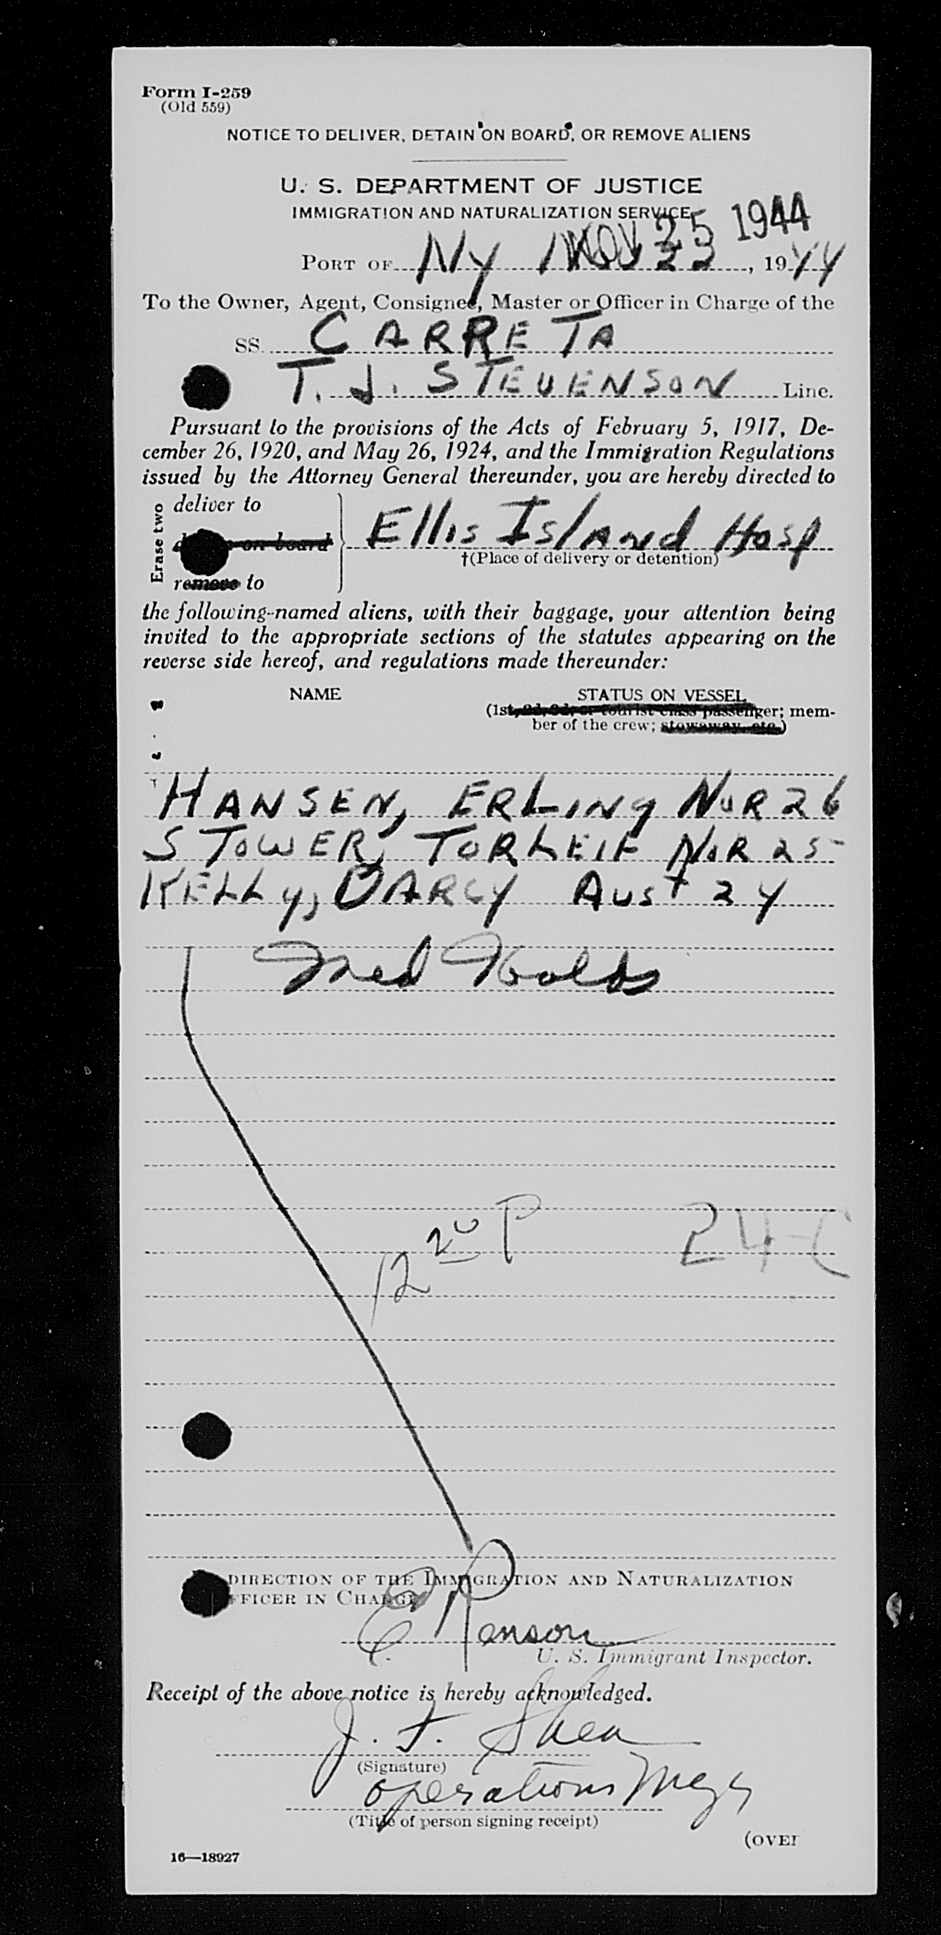 Form I-259
(Old 559)
NOTICE TO DELIVER, DETAIN ON BOARD, OR REMOVE ALIENS
U. S. DEPARTMENT OF JUSTICE
IMMIGRATION AND NATURALIZATION SERVICE
NOV 25 1944
PORT OF NY, 1944
To the Owner, Agent, Consignee, Master or Officer in Charge of the
SS. CARRETA
T. J. STEVENSON Line.
Pursuant to the provisions of the Acts of February 5, 1917, De-
cember 26, 1920, and May 26, 1924, and the Immigration Regulations
issued by the Attorney General thereunder, you are hereby directed to
Erase two
deliver to
on board
remove to
Ellis Island Hosp
†(Place of delivery or detention)
the following-named aliens, with their baggage, your attention being
invited to the appropriate sections of the statutes appearing on the
reverse side hereof, and regulations made thereunder:
NAME STATUS ON VESSEL
(1st, 2d, 3d, or tourist class passenger; mem-
ber of the crew; stowaway, etc.)
HANSEN, ERLING NOR 26
STOWER, TORLEIF NOR 25
KELLY, DARCY Aust 24
Med Holds
12 20 P
24-C
DIRECTION OF THE IMMIGRATION AND NATURALIZATION
OFFICER IN CHARGE
U. S. Immigrant Inspector.
Receipt of the above notice is hereby acknowledged.
J. F. Shea
(Signature)
operations Megr
(Title of person signing receipt)
(OVER
16—18927